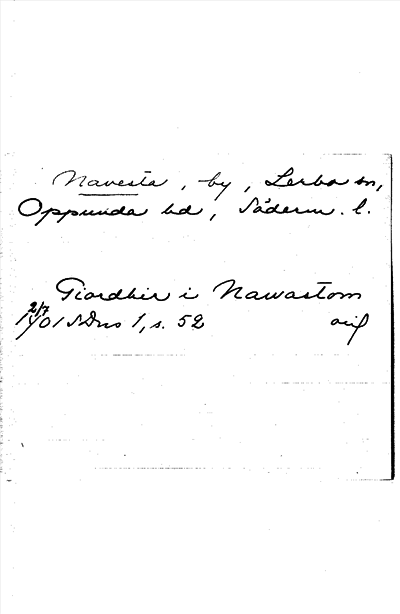 Navesta, by, Lerbo sn,
Oppunda hd, Söderm. l.
Giordhir i Nawastom
2/7
1401 SDns 1, s. 52 orig